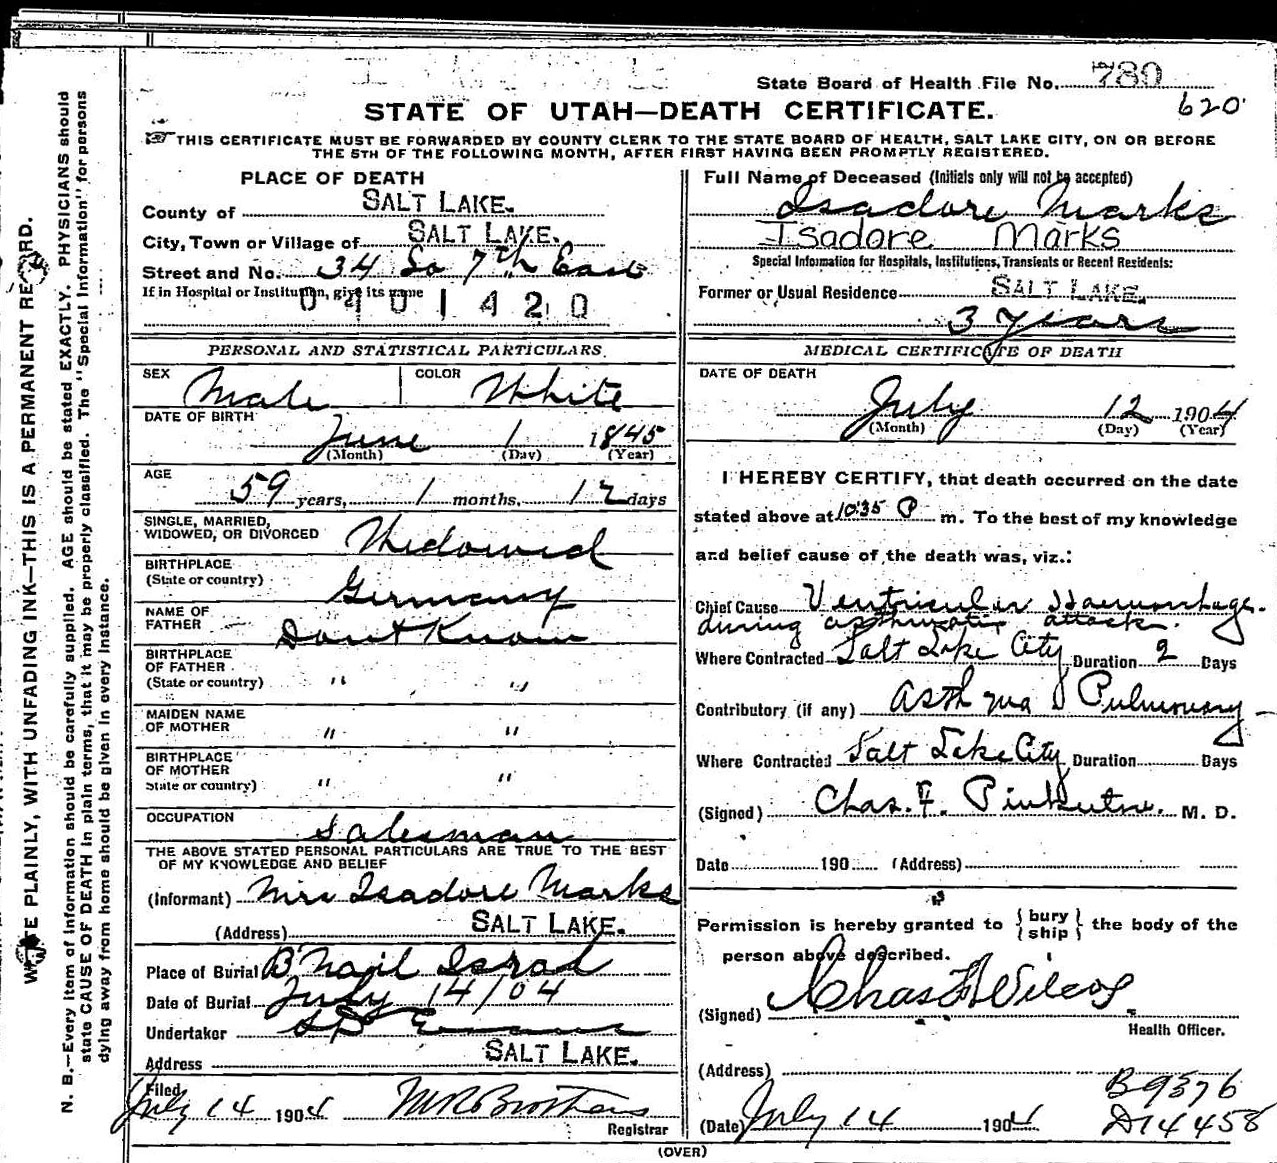 State Board of Health File No. 780
620
STATE OF UTAH—DEATH CERTIFICATE.
☞ THIS CERTIFICATE MUST BE FORWARDED BY COUNTY CLERK TO THE STATE BOARD OF HEALTH, SALT LAKE CITY, ON OR BEFORE
THE 5TH OF THE FOLLOWING MONTH, AFTER FIRST HAVING BEEN PROMPTLY REGISTERED.
PLACE OF DEATH
County of SALT LAKE.
City, Town or Village of SALT LAKE.
Street and No. 34 So 7th East
If in Hospital or Institution, give its name
0401420
PERSONAL AND STATISTICAL PARTICULARS
SEX Male COLOR White
DATE OF BIRTH
June 1 1845
(Month) (Day) (Year)
AGE
59 years, 1 months, 12 days
SINGLE, MARRIED,
WIDOWED, OR DIVORCED Widowed
BIRTHPLACE
(State or country) Germany
NAME OF
FATHER Dont Know
BIRTHPLACE
OF FATHER
(State or country) " "
MAIDEN NAME
OF MOTHER " "
BIRTHPLACE
OF MOTHER
State or country) " "
OCCUPATION Salesman
THE ABOVE STATED PERSONAL PARTICULARS ARE TRUE TO THE BEST
OF MY KNOWLEDGE AND BELIEF
(Informant) Mrs Isadore Marks
(Address) SALT LAKE.
Place of Burial B'Nail Israel
Date of Burial July 14/04
Undertaker SD Evans
Address SALT LAKE.
Filed
July 14 1904 MRBrothers
Registrar
Full Name of Deceased (Initials only will not be accepted)
Isadore Marks
Isadore Marks
Special Information for Hospitals, Institutions, Transients or Recent Residents:
Former or Usual Residence SALT LAKE.
3 years
MEDICAL CERTIFICATE OF DEATH
DATE OF DEATH
July 12 1904
(Month) (Day) (Year)
I HEREBY CERTIFY, that death occurred on the date
stated above at 10:35 P m. To the best of my knowledge
and belief cause of the death was, viz.:
Chief Cause Ventricular Haemorrhage.
during asthmatic attack.
Where Contracted Salt Lake City Duration 2 Days
Contributory (if any) Asthma Pulmonary
Where Contracted Salt Lake City Duration Days
(Signed) Chas. F. Pinkerton. M. D.
Date 190 (Address)
Permission is hereby granted to { bury ship } the body of the
person above described.
(Signed) Chas Wilcox
Health Officer.
(Address)
B9376
(Date) July 14 1904 D14458
(OVER)
WRITE PLAINLY, WITH UNFADING INK—THIS IS A PERMANENT RECORD.
N. B.—Every item of information should be carefully supplied. AGE should be stated EXACTLY. PHYSICIANS should
state CAUSE OF DEATH in plain terms, that it may be properly classified. The "Special Information" for persons
dying away from home should be given in every instance.